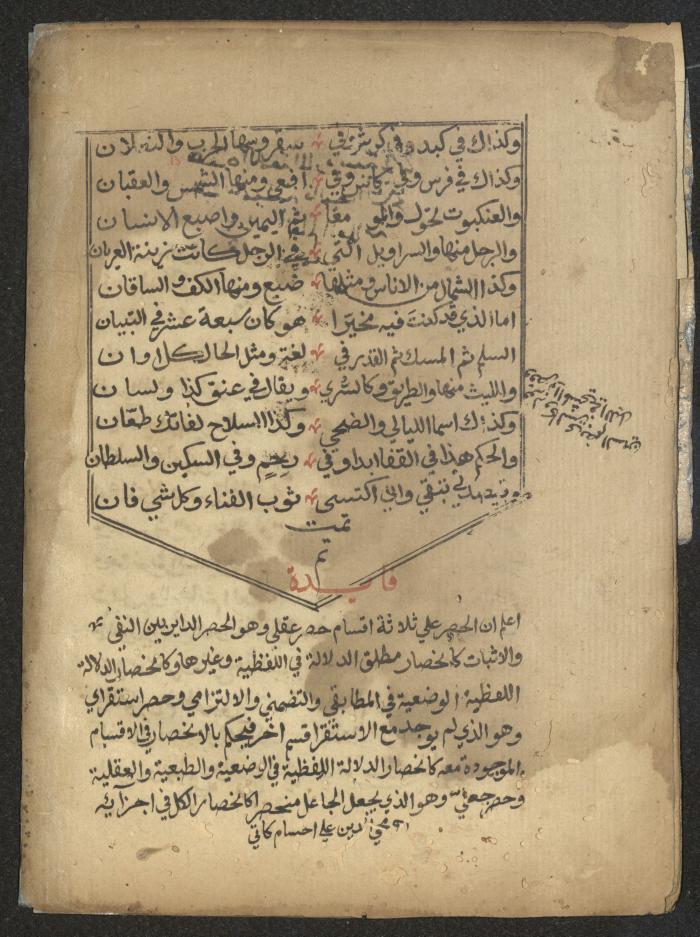 وكذاك في كبد وفي كرش وفي ؞ سقر ومنها الحرب والنعلان
وكذاك في فرس وفي كاس وفي ؞ افعى ومنها الشمس والعقبان
والعنكبوت تحول والموسى معا ؞ ثم اليمين واصبع الانسان
والرجل منها والسراويل التي ؞ في الرجل كانت زينة العريان
وكذا الشمال من الاناس ومثلها ؞ ضبع ومنها الكف والساقان
اما الذي قد كنت فيه مخيرا ؞ هو كان سبعة عشر في التبيان
السلم ثم المسك ثم القدر في ؞ لغة ومثل الحال كل اوان
والليث منها والطريق وكالسرى ؞ ويقال في عنق كذا ولسان
وكذاك اسما الليالي والضحى ؞ وكذا السلاح لقاتك طعان
والحكم هذا في القفا ابدا وفي ؞ رحم وفي السكين والسلطان
وقصيدتي تبقى واني اكتسى ؞ ثوب الفناء وكل شي فان
تمت
تم
فايدة
اعلم ان الحصر علي ثلاثة اقسام حصر عقلي وهو الحصر الداير بين النفي
والاثبات كانحصار مطلق الدلالة في اللفظية وغيرها وكانحصار الدلالة
اللفظية الوضعية في المطابقي والتضمني والالتزامي وحصر استقراي
وهو الذي لم يوجد مع الاستقرا قسم اخر فيحكم بالانحصار في الاقسام
الموجودة معه كانحصار الدلالة اللفظية في الوضعية والطبعية والعقلية
وحصر جعلي وهو الذي يجعل الجاعل منحصرا كانحصار الكل في اجزايه
محي الدين علي احسام كاتي